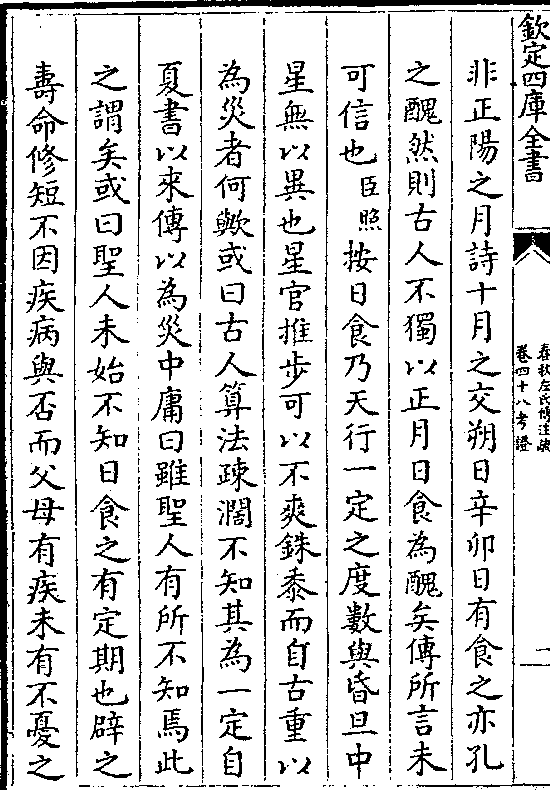 欽定四庫全書
春秋左氏傳注疏
卷四十八考證
二
非正陽之月詩十月之交朔日辛卯日有食之亦孔
之醜然則古人不獨以正月日食為醜矣傳所言未
可信也臣照按日食乃天行一定之度數與昏旦中
星無以異也星官推步可以不爽銖黍而自古重以
為災者何歟或曰古人算法疎濶不知其為一定自
夏書以來傳以為災中庸曰雖聖人有所不知焉此
之謂矣或曰聖人未始不知日食之有定期也辟之
壽命修短不因疾病與否而父母有疾未有不憂之